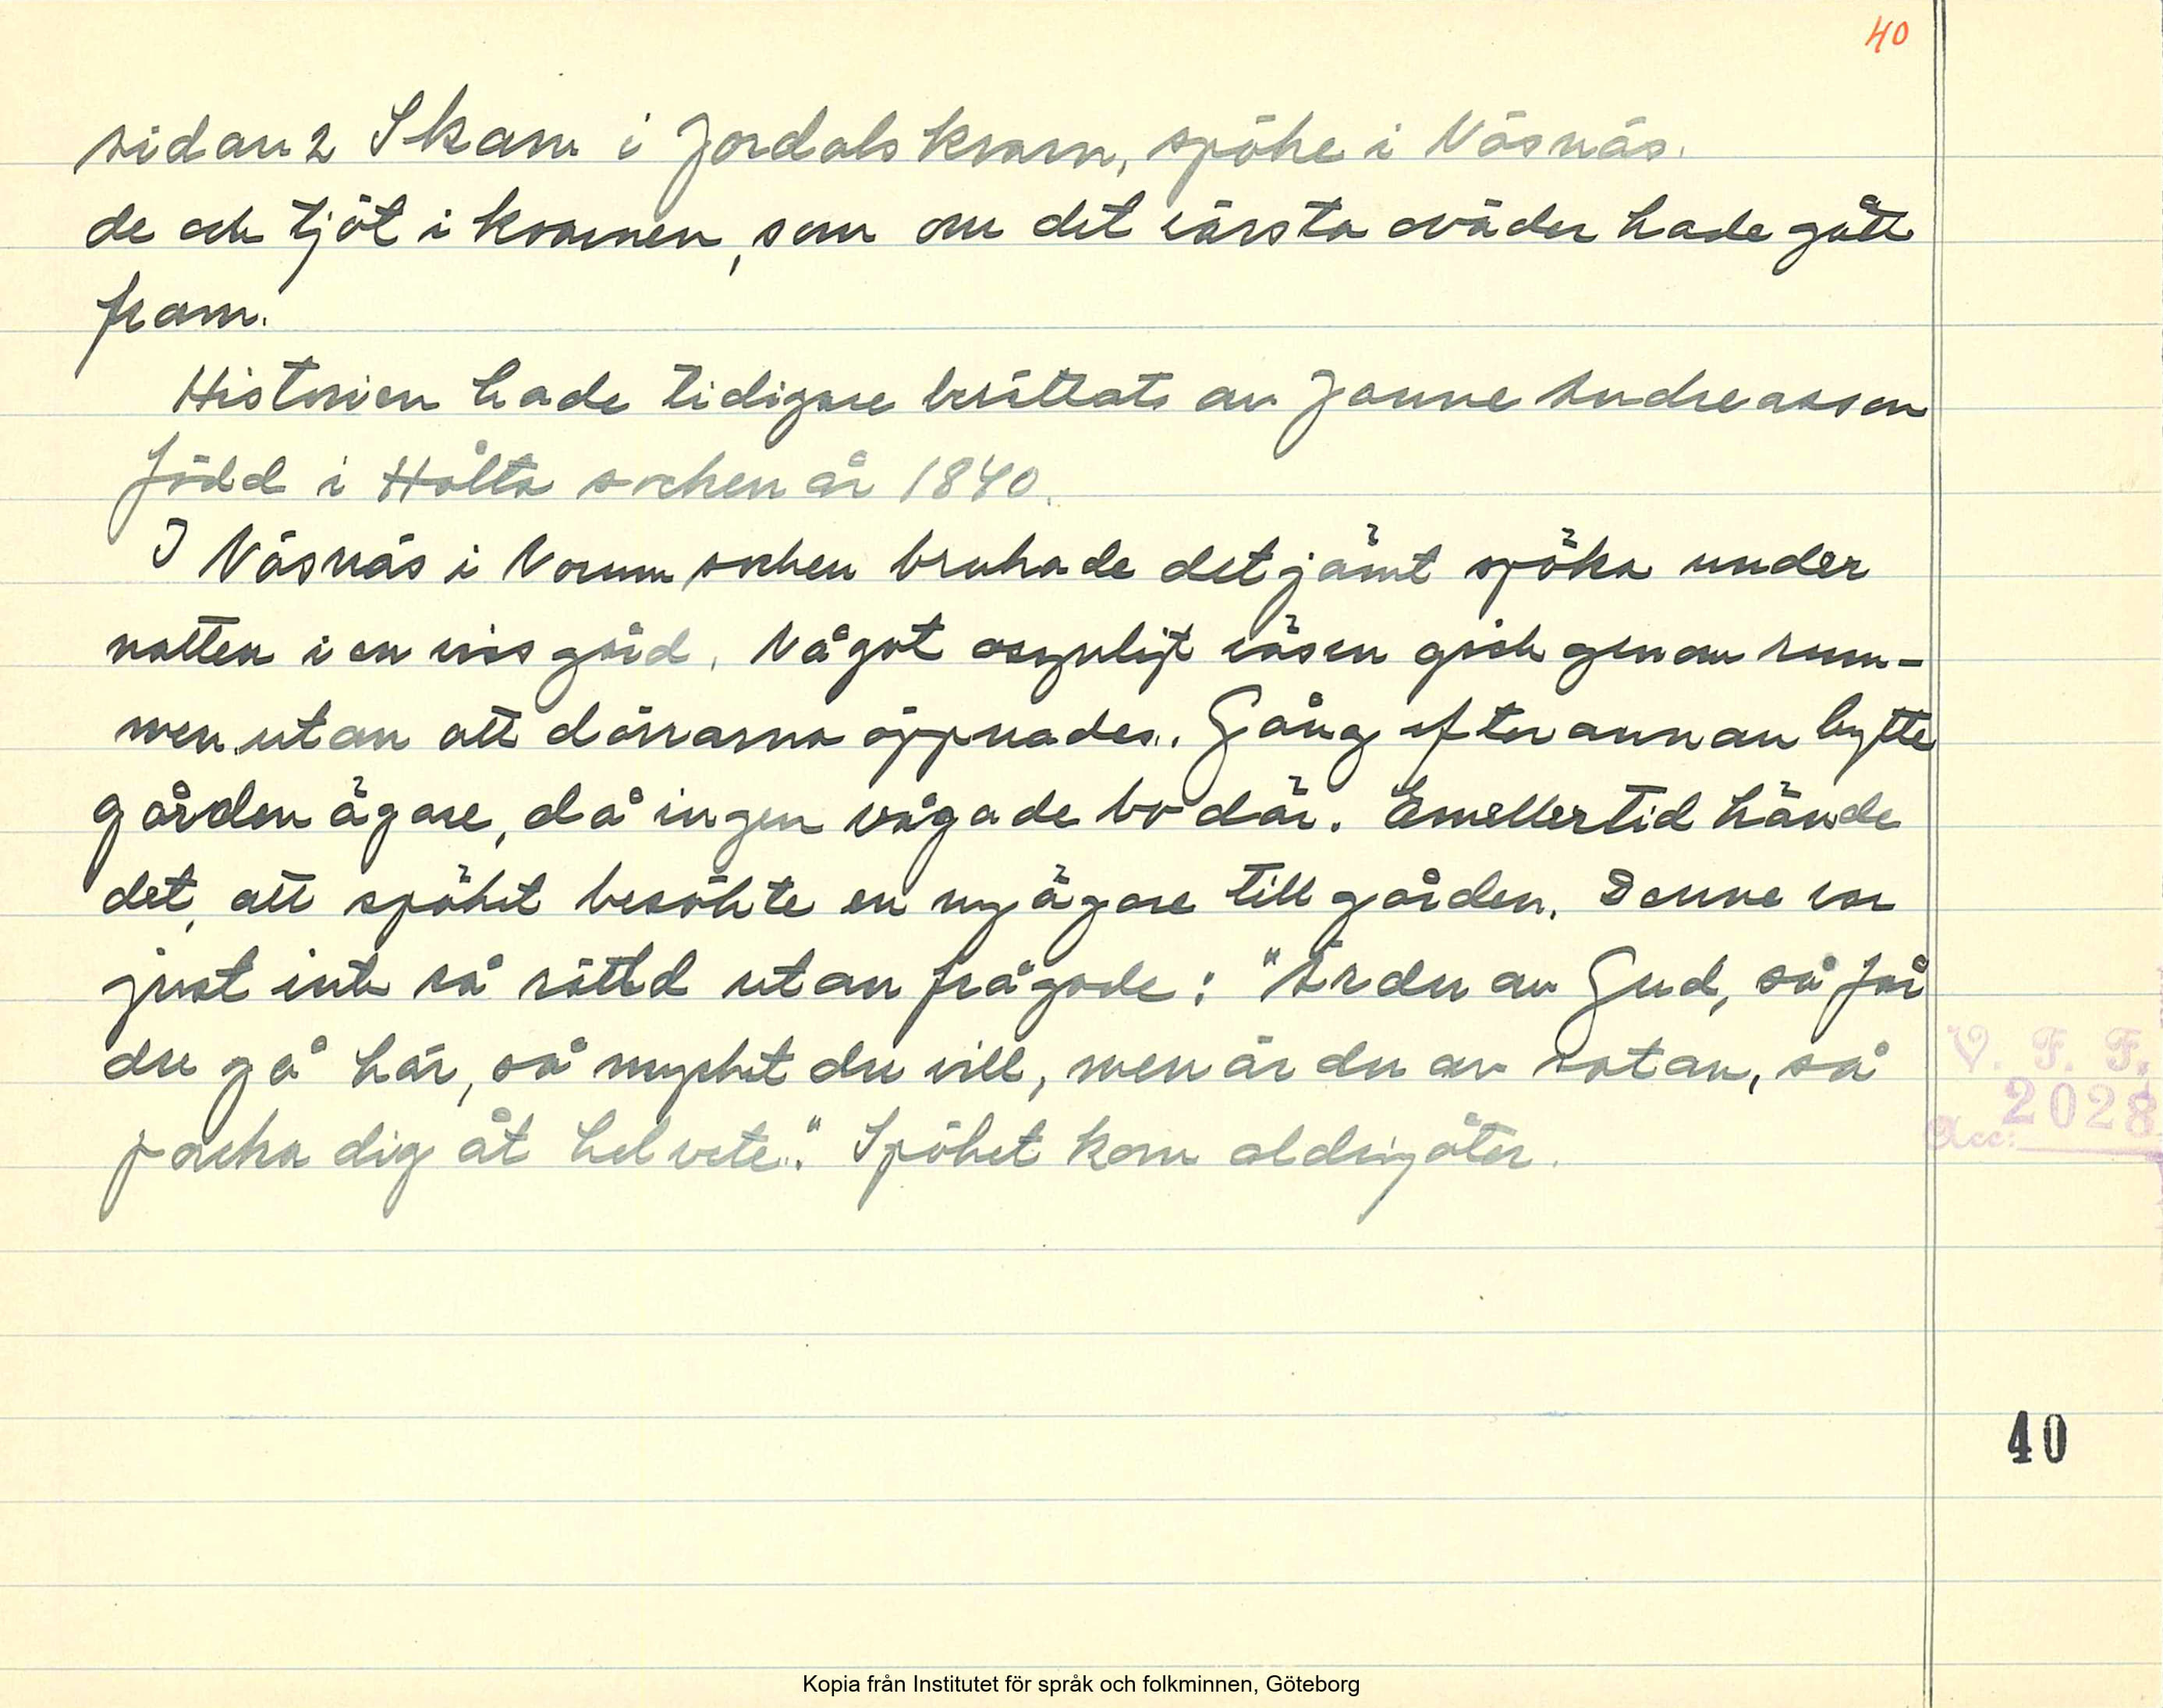 40
sidan 2 Skam i Jordals kvarn, spöke i Näsnäs.
de och tjöt i kvarnen, som om det värsta oväder hade gått
fram.
Historien hade tidigare berättats av Janne Andreasson
född i Hålta socken år 1840.
I Näsnäs i Norum socken brukade det jämt spöka under
natten i en viss gård. Något osynligt väsen gick genom rum-
men utan att dörrarna öppnades. Gång efter annan bytte
gården ägare, då ingen vågade bo där. Emellertid hände
det, att spöket besökte en ny ägare till gården. Denne var
just inte så rädd utan frågade: "Är du av Gud, så får
du gå här, så mycket du vill, men är du av satan, så
packa dig åt helvete." Spöket kom aldrig åter.
V. F. F.
2028
Acc:
40
Kopia från Institutet för språk och folkminnen, Göteborg